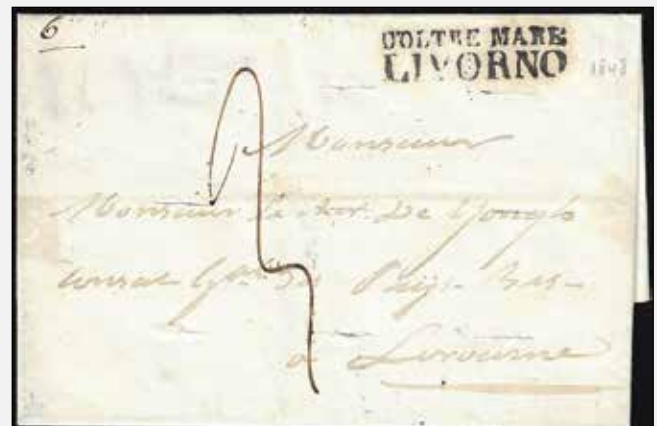 6
D'OLTRE MARE
LIVORNO
1843
Monsieur
Monsieur le
De
Consul Gal des Pays-Bas
à Livourne